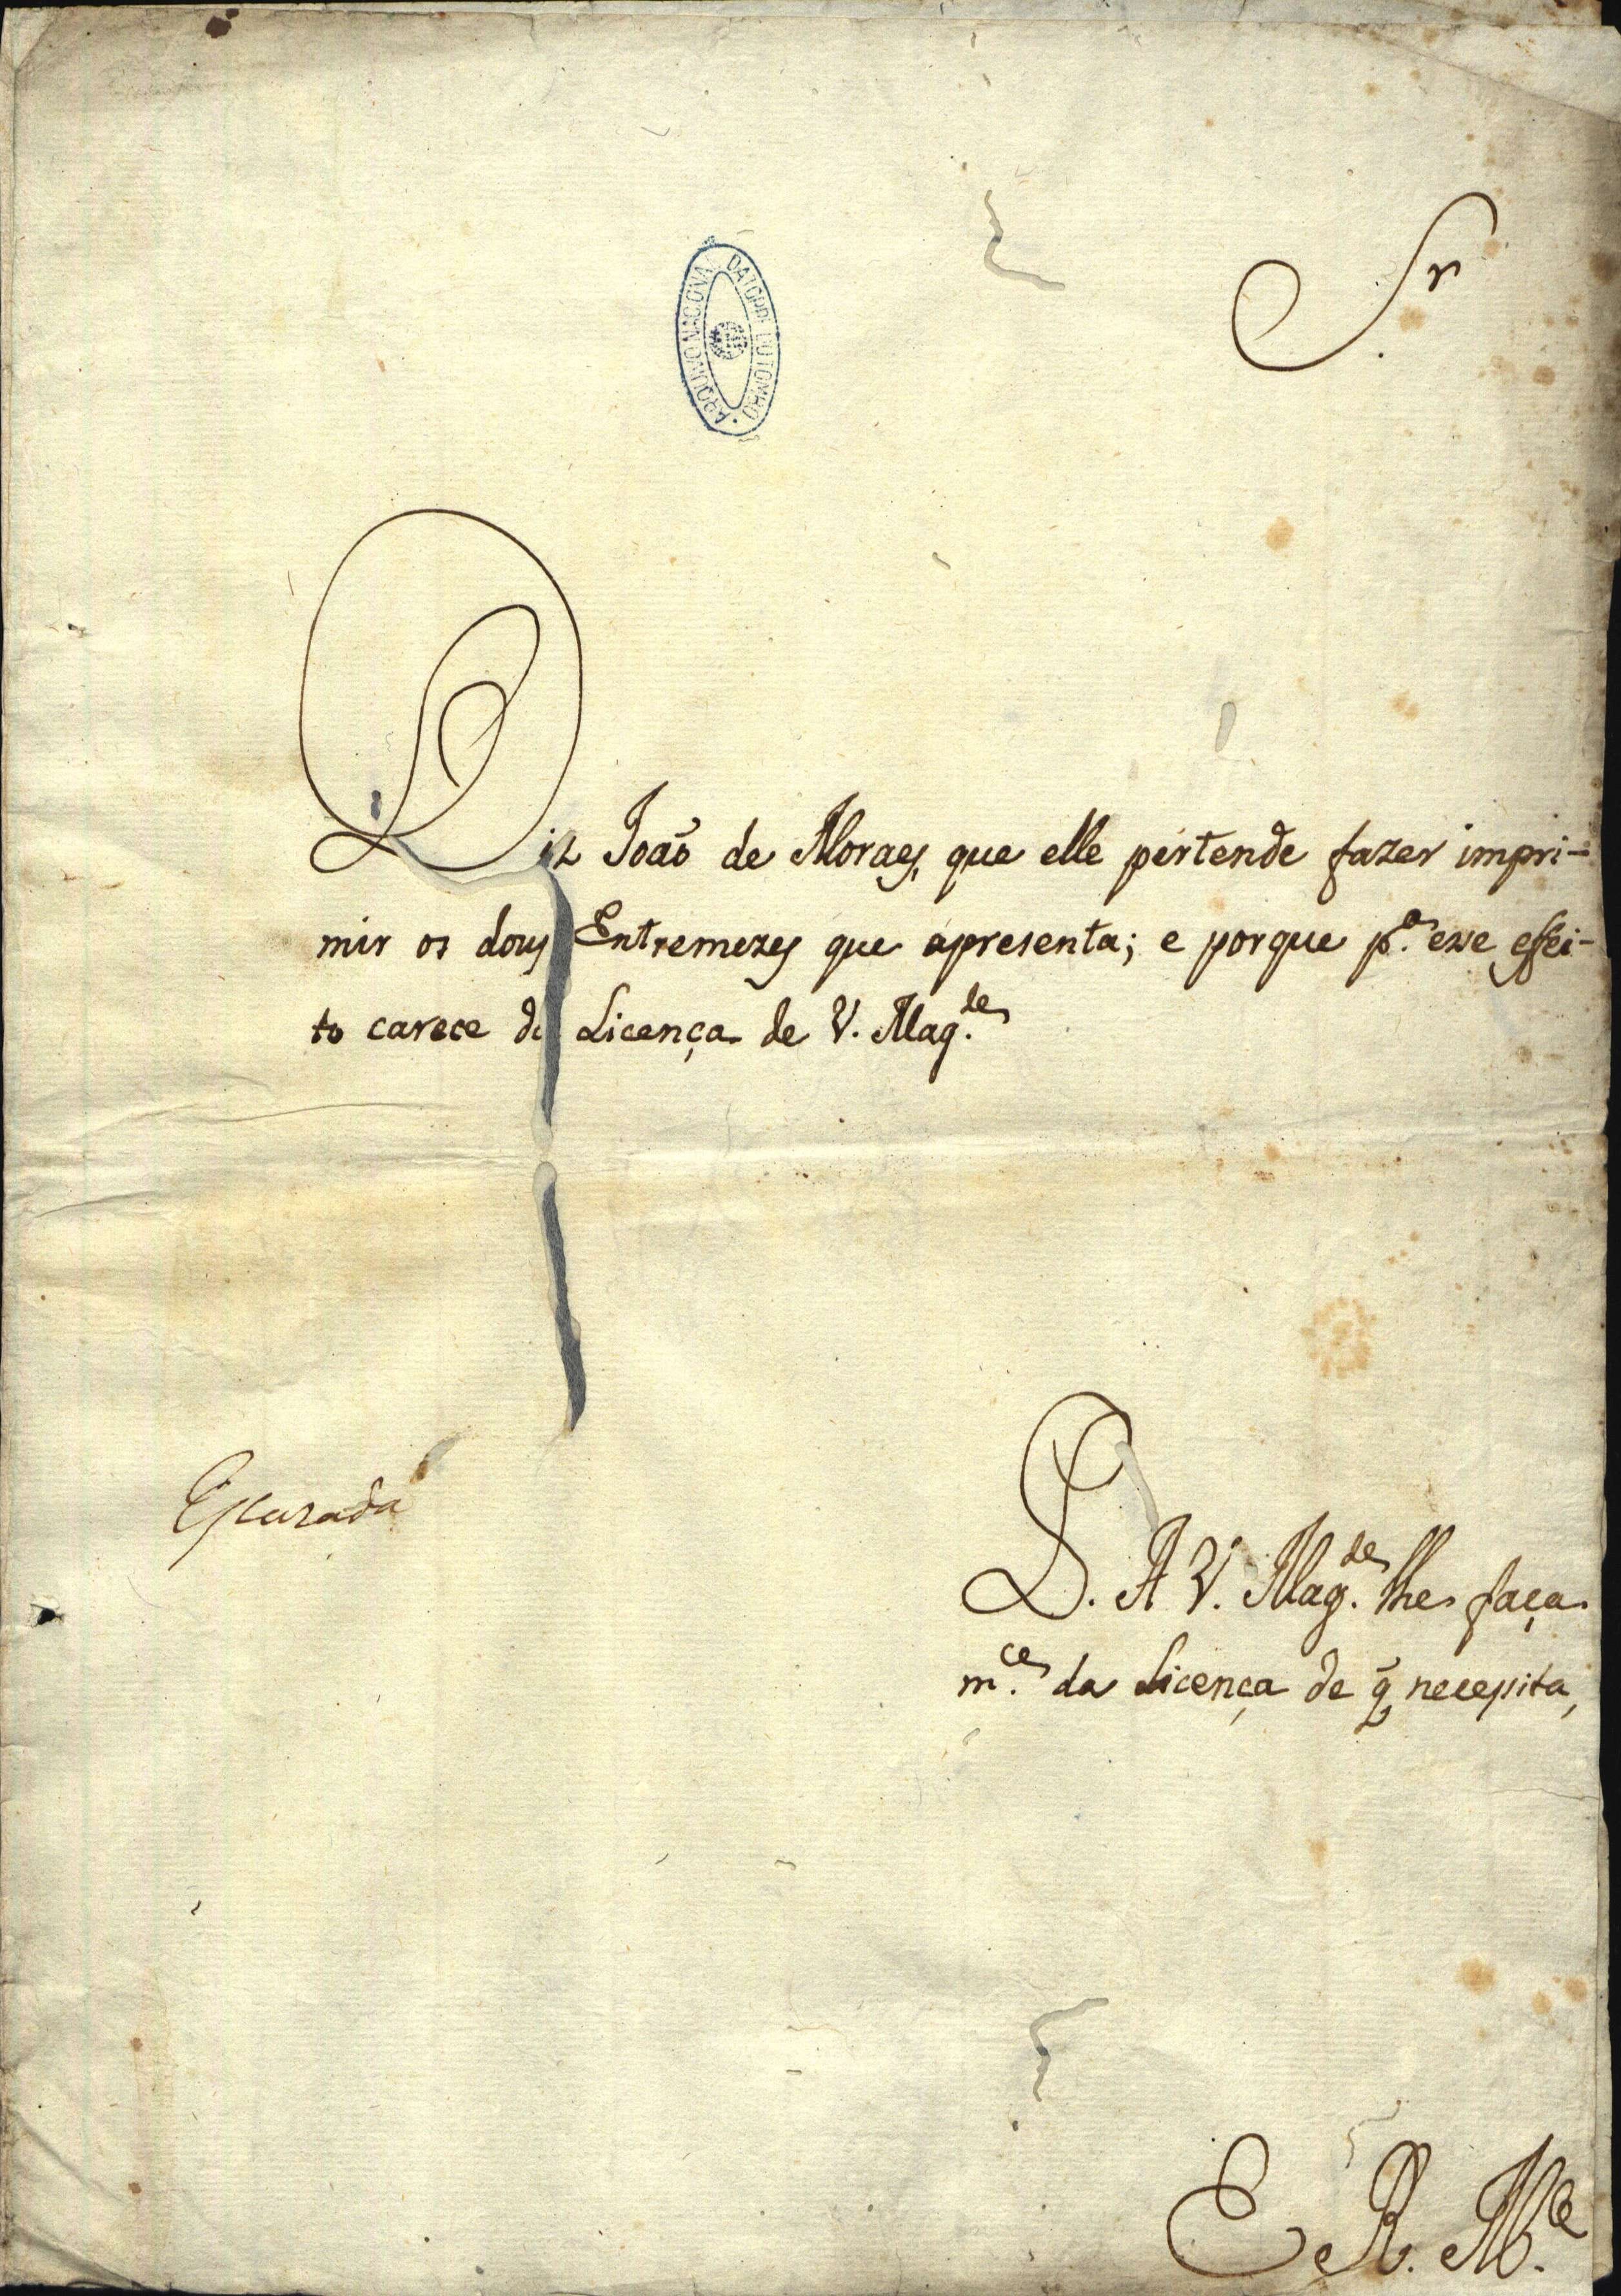 Sr.
ARQUIVO NACIONAL DA TORRE DO TOMBO
Diz João de Moraes, que elle pertende fazer impri-
mir os dous Entremezes que apresenta; e porque p.ª esse effei-
to carece da Licença de V. Mag.de
Escuzada
P. A V. Mag.de lhe faça
m.ce da Licença de q̃ necessita,
E. R. M.ce